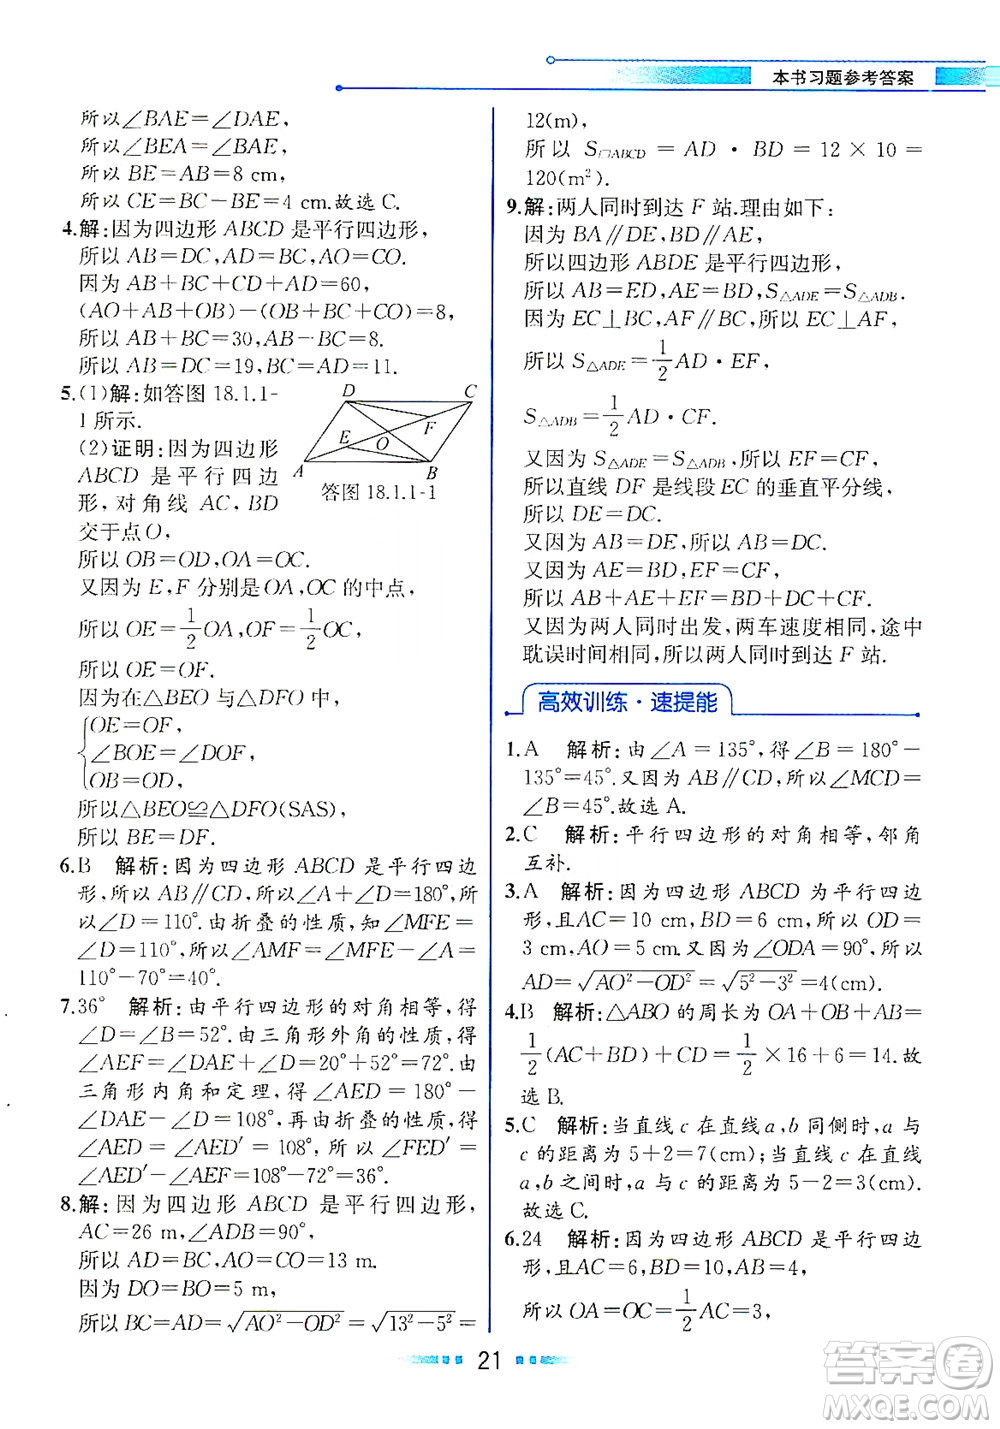 本书习题参考答案
所以∠BAE=∠DAE,
所以∠BEA=∠BAE,
所以 BE=AB=8 cm,
所以 CE=BC-BE=4 cm.故选 C.
4.解:因为四边形 ABCD 是平行四边形,
所以 AB=DC,AD=BC,AO=CO.
因为 AB+BC+CD+AD=60,
(AO+AB+OB)-(OB+BC+OC)=8,
所以 AB+BC=30,AB-BC=8,
所以 AB=DC=19,BC=AD=11.
5.(1)解:如答图 18.1.1-
1 所示.
(2)证明:因为四边形
ABCD 是平行四边
形,对角线 AC,BD
交于点 O,
D C
F
E O
A B
答图 18.1.1-1
所以 OB=OD,OA=OC.
又因为 E,F 分别是 OA,OC 的中点,
所以 OE=1/2OA,OF=1/2OC,
所以 OE=OF.
因为在△BEO 与△DFO 中,
OE=OF,
∠BOE=∠DOF,
OB=OD,
所以△BEO≌△DFO(SAS),
所以 BE=DF.
6.B 解析:因为四边形 ABCD 是平行四边
形,所以 AB∥CD,所以∠A+∠D=180°,所
以∠D=110°.由折叠的性质,知∠MFE=
∠D=110°,所以∠AMF=∠MFE-∠A=
110°-70°=40°.
7.36° 解析:由平行四边形的对角相等,得
∠D=∠B=52°.由三角形外角的性质,得
∠AEF=∠DAE+∠D=20°+52°=72°.由
三角形内角和定理,得∠AED=180°-
∠DAE-∠D=108°.再由折叠的性质,得
∠AED=∠AED′=108°,所以∠FED′=
∠AED′-∠AEF=108°-72°=36°.
8.解:因为四边形 ABCD 是平行四边形,
AC=26 m,∠ADB=90°,
所以 AD=BC,AO=CO=13 m.
因为 DO=BO=5 m,
所以 BC=AD=√(AO²-OD²)=√(13²-5²)=
12(m),
所以 S▱ABCD=AD·BD=12×10=
120(m²).
9.解:两人同时到达 F 站.理由如下:
因为 BA∥DE,BD∥AE,
所以四边形 ABDE 是平行四边形,
所以 AB=ED,AE=BD,S△ADE=S△ADB.
因为 EC⊥BC,AF∥BC,所以 EC⊥AF,
所以 S△ADE=1/2AD·EF,
S△ADB=1/2AD·CF.
又因为 S△ADE=S△ADB,所以 EF=CF,
所以直线 DF 是线段 EC 的垂直平分线,
所以 DE=DC.
又因为 AB=DE,所以 AB=DC.
又因为 AE=BD,EF=CF,
所以 AB+AE+EF=BD+DC+CF.
又因为两人同时出发,两车速度相同,途中
耽误时间相同,所以两人同时到达 F 站.
高效训练·速提能
1.A 解析:由∠A=135°,得∠B=180°-
135°=45°.又因为 AB∥CD,所以∠MCD=
∠B=45°.故选 A.
2.C 解析:平行四边形的对角相等,邻角
互补.
3.A 解析:因为四边形 ABCD 为平行四边
形,且AC=10 cm,BD=6 cm,所以 OD=
3 cm,AO=5 cm.又因为∠ODA=90°,所以
AD=√(AO²-OD²)=√(5²-3²)=4(cm).
4.B 解析:△ABO 的周长为 OA+OB+AB=
1/2(AC+BD)+CD=1/2×16+6=14.故
选 B.
5.C 解析:当直线 c 在直线 a,b 同侧时,a 与
c 的距离为 5+2=7(cm);当直线 c 在直线
a,b 之间时,a 与 c 的距离为 5-2=3(cm).
故选 C.
6.24 解析:因为四边形 ABCD 是平行四边
形,且AC=6,BD=10,AB=4,
所以 OA=OC=1/2AC=3,
21
答案圈
MXQE.COM